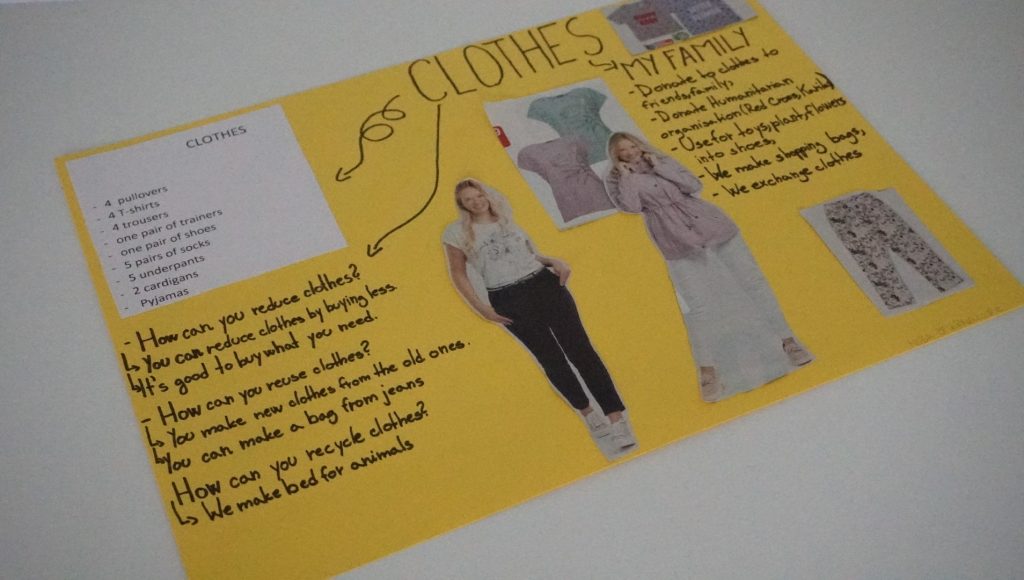 CLOTHES
CLOTHES
- 4 pullovers
- 4 T-shirts
- 4 trousers
- one pair of trainers
- one pair of shoes
- 5 pairs of socks
- 5 underpants
- 2 cardigans
- Pyjamas
- How can you reduce clothes?
You can reduce clothes by buying less.
It's good to buy what you need.
- How can you reuse clothes?
You make new clothes from the old ones.
You can make a bag from jeans
How can you recycle clothes?
We make bed for animals
MY FAMILY
- Donate clothes to
friends, family,
- Donate Humanitarian
organisation (Red Cross,
- Use for toys, plant, flowers
into shoes,
- We make shopping bags,
- We exchange clothes